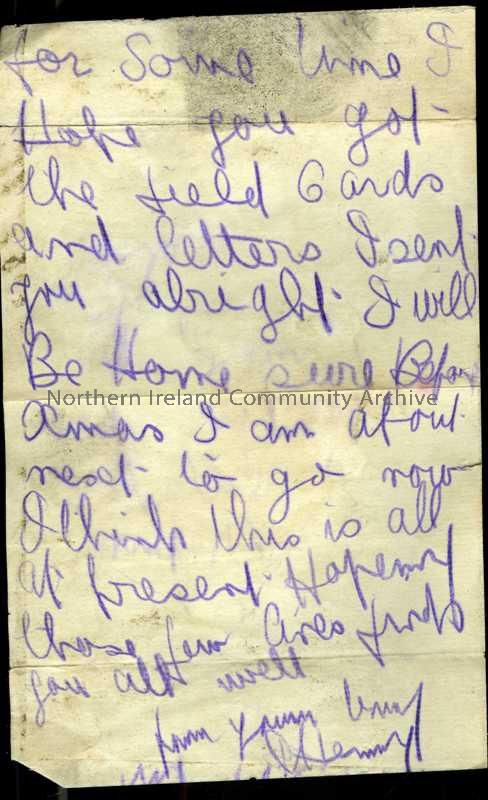 for Some time I
Hope you got
the field Cards
and letters I sent
you alright I will
Be Home sure Before
Northern Ireland Community Archive
Xmas I am about
next to go now
I think this is all
at present Hopeing
those few lines finds
you all well
from your
Henry